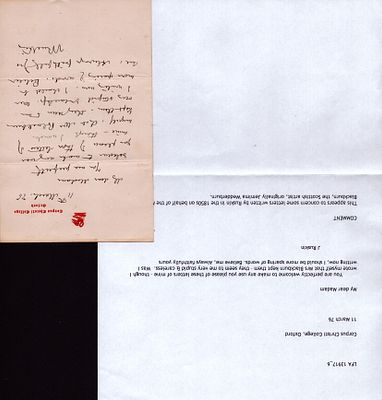 LFA 13917_6
Corpus Christi College, Oxford,
11 March 76
My dear Madam
You are perfectly welcome to make any use you please of these letters of mine - though I
wrote myself that Mrs Blackburn kept them - they seem to me very stupid & careless. Was I
writing now, I should be more sparing of words. Believe me, Always faithfully yours
J Ruskin
COMMENT
This appears to concern some letters written by Ruskin in the 1850s on behalf of the
Blackburn, the Scottish artist, originally Jemima Wedderburn.
Corpus Christi College
Oxford
11 March. 76
My dear Madam
You are perfectly
welcome to make any use
you please of these letters of
mine - though I
myself that Mrs Blackburn
kept them - they seem to me
very stupid & careless. Was
I writing now, I should be
more sparing of words. Believe
me, Always faithfully yrs
J Ruskin